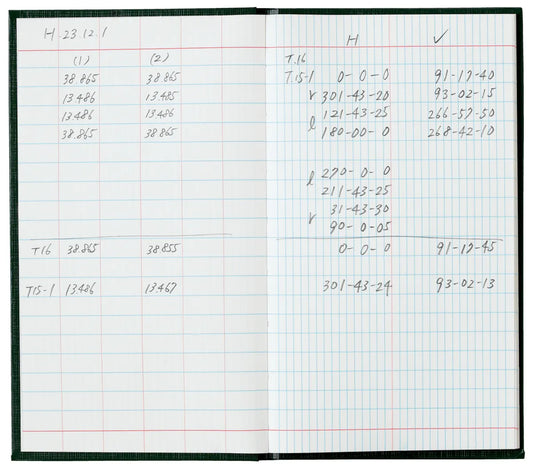 H.23.12.1
(1) (2)
38.865 38.865
13.486 13.485
13.486 13.486
38.865 38.865
T16 38.865 38.855
T15-1 13.486 13.467
H V
T.16
T.15-1 0-0-0 91-17-40
r 301-43-20 93-02-15
l 121-43-25 266-57-50
180-00-0 268-42-10
l 270-0-0
211-43-25
r 31-43-30
90-0-05
0-0-0 91-17-45
301-43-24 93-02-13